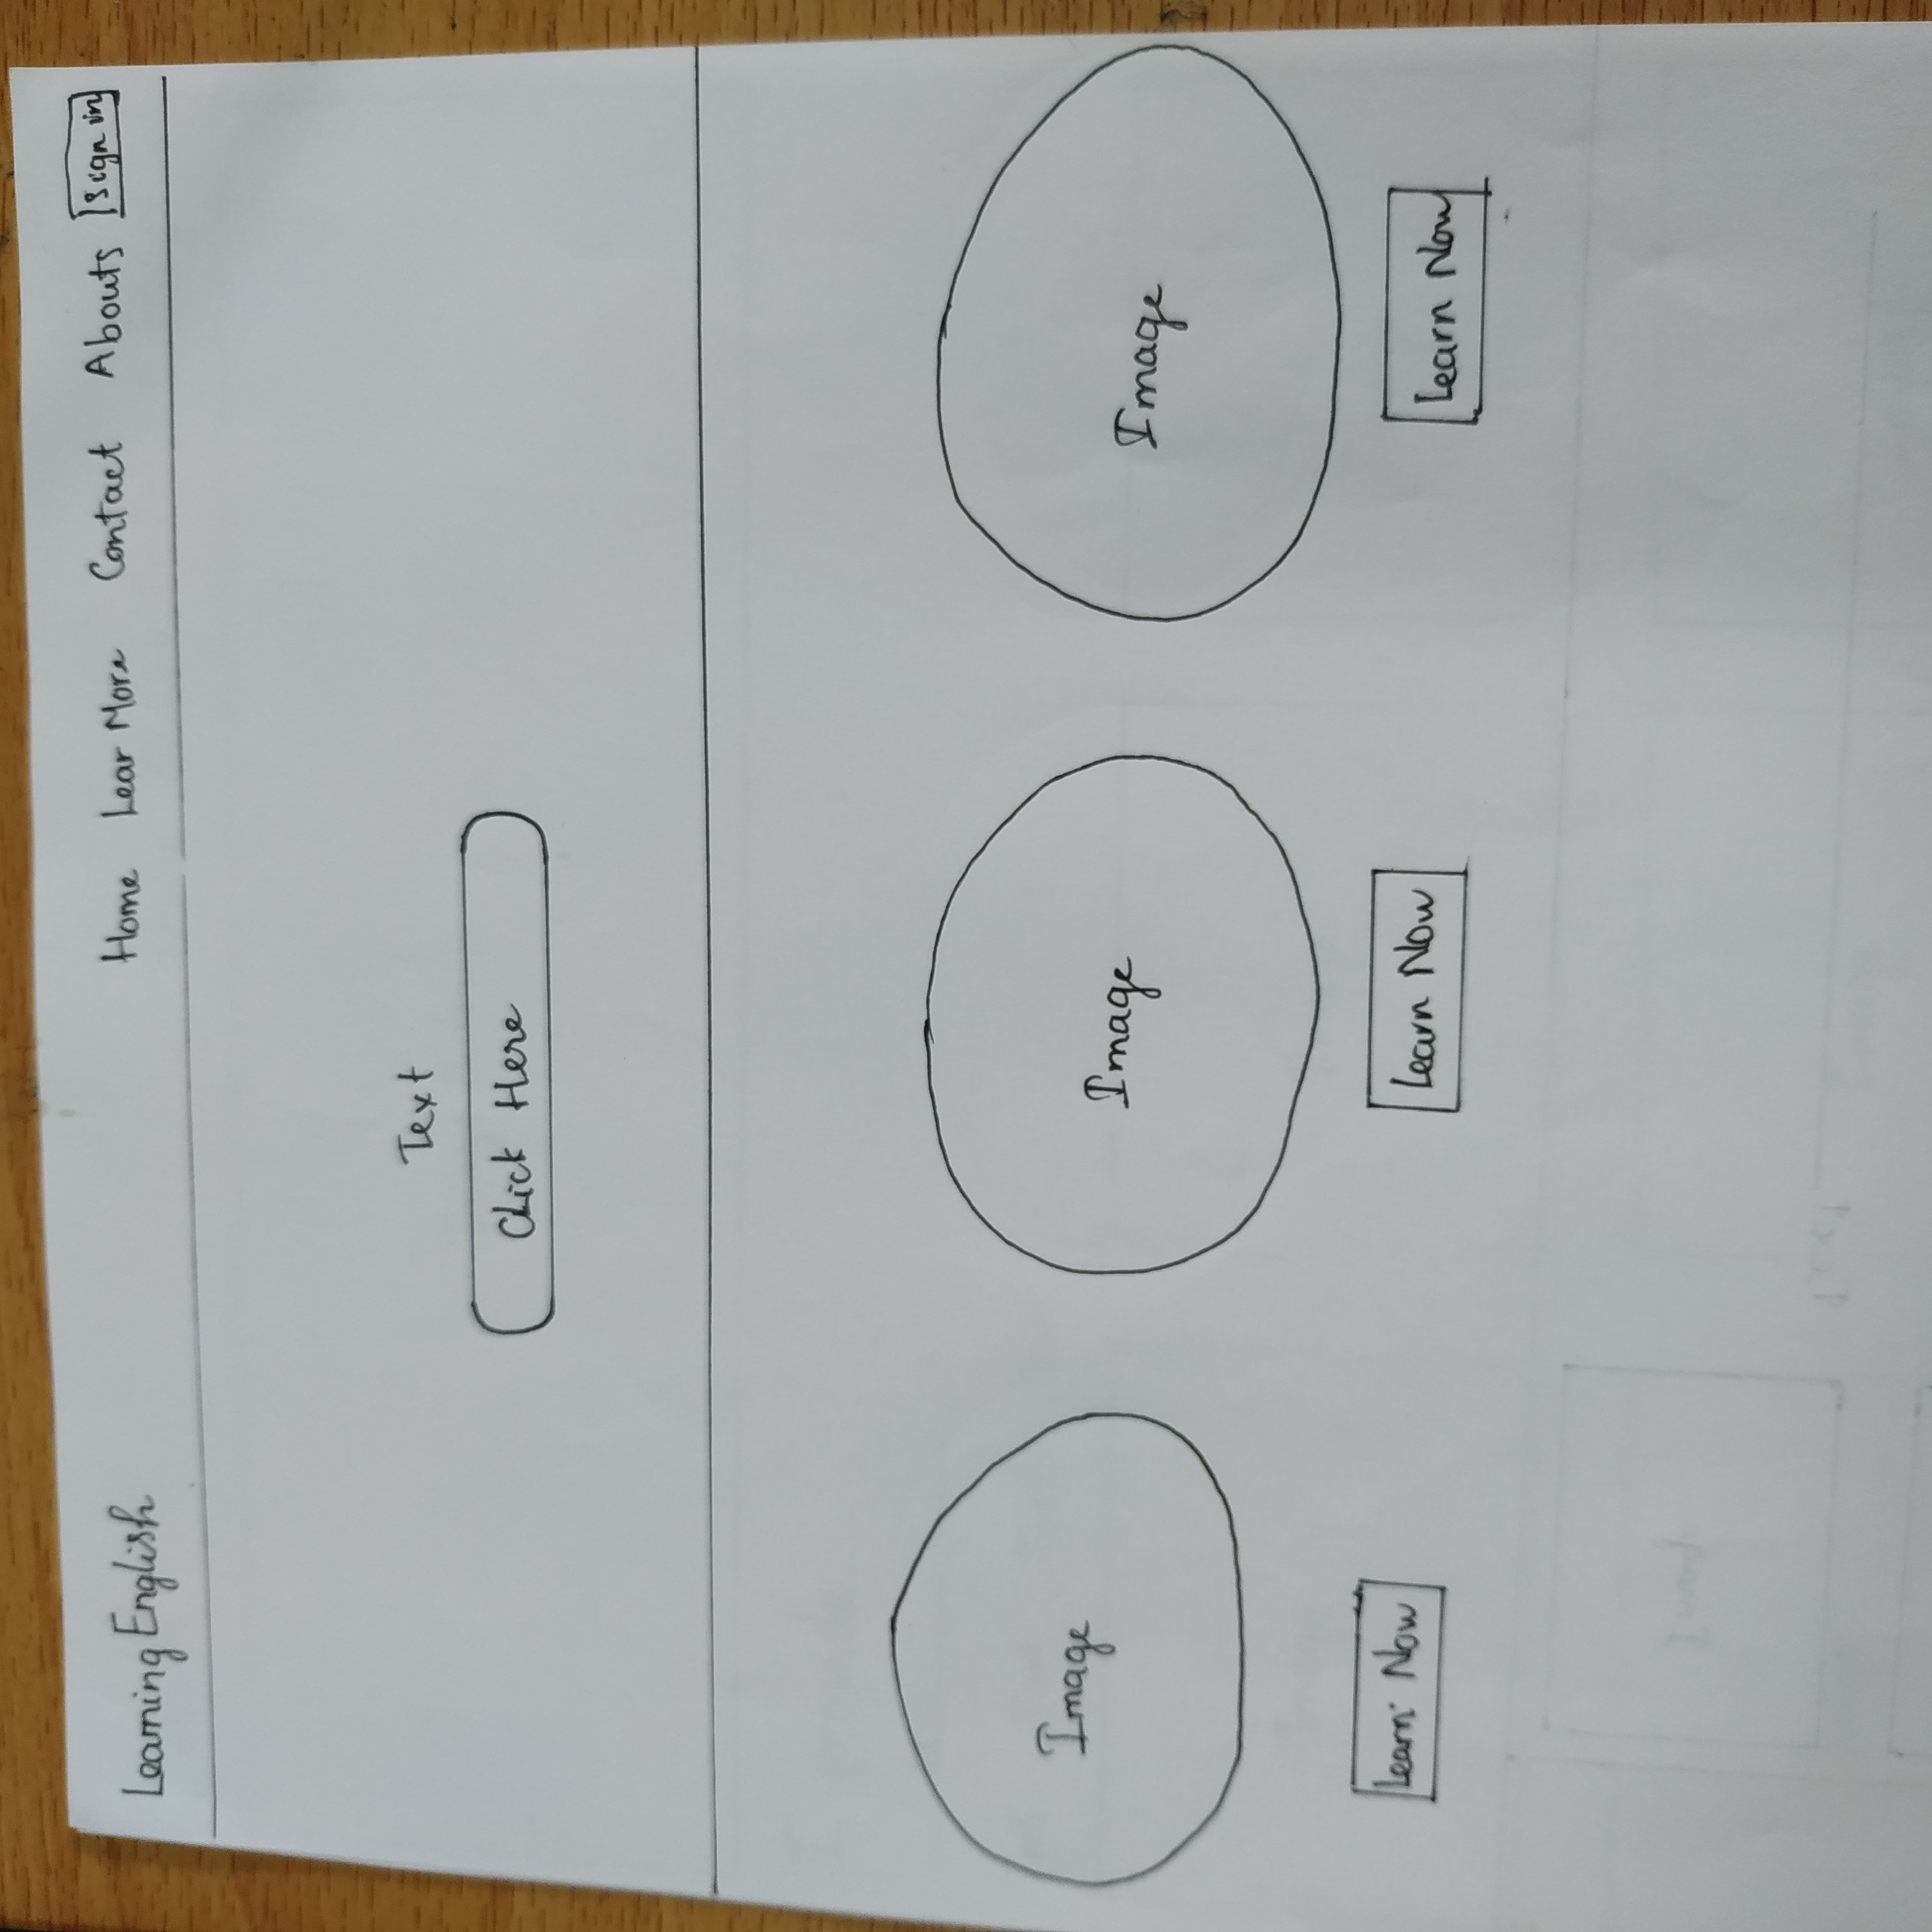 Learning English
Home Lear More Contact Abouts Sign in
Text
Click Here
Image Image Image
Learn Now Learn Now Learn Now